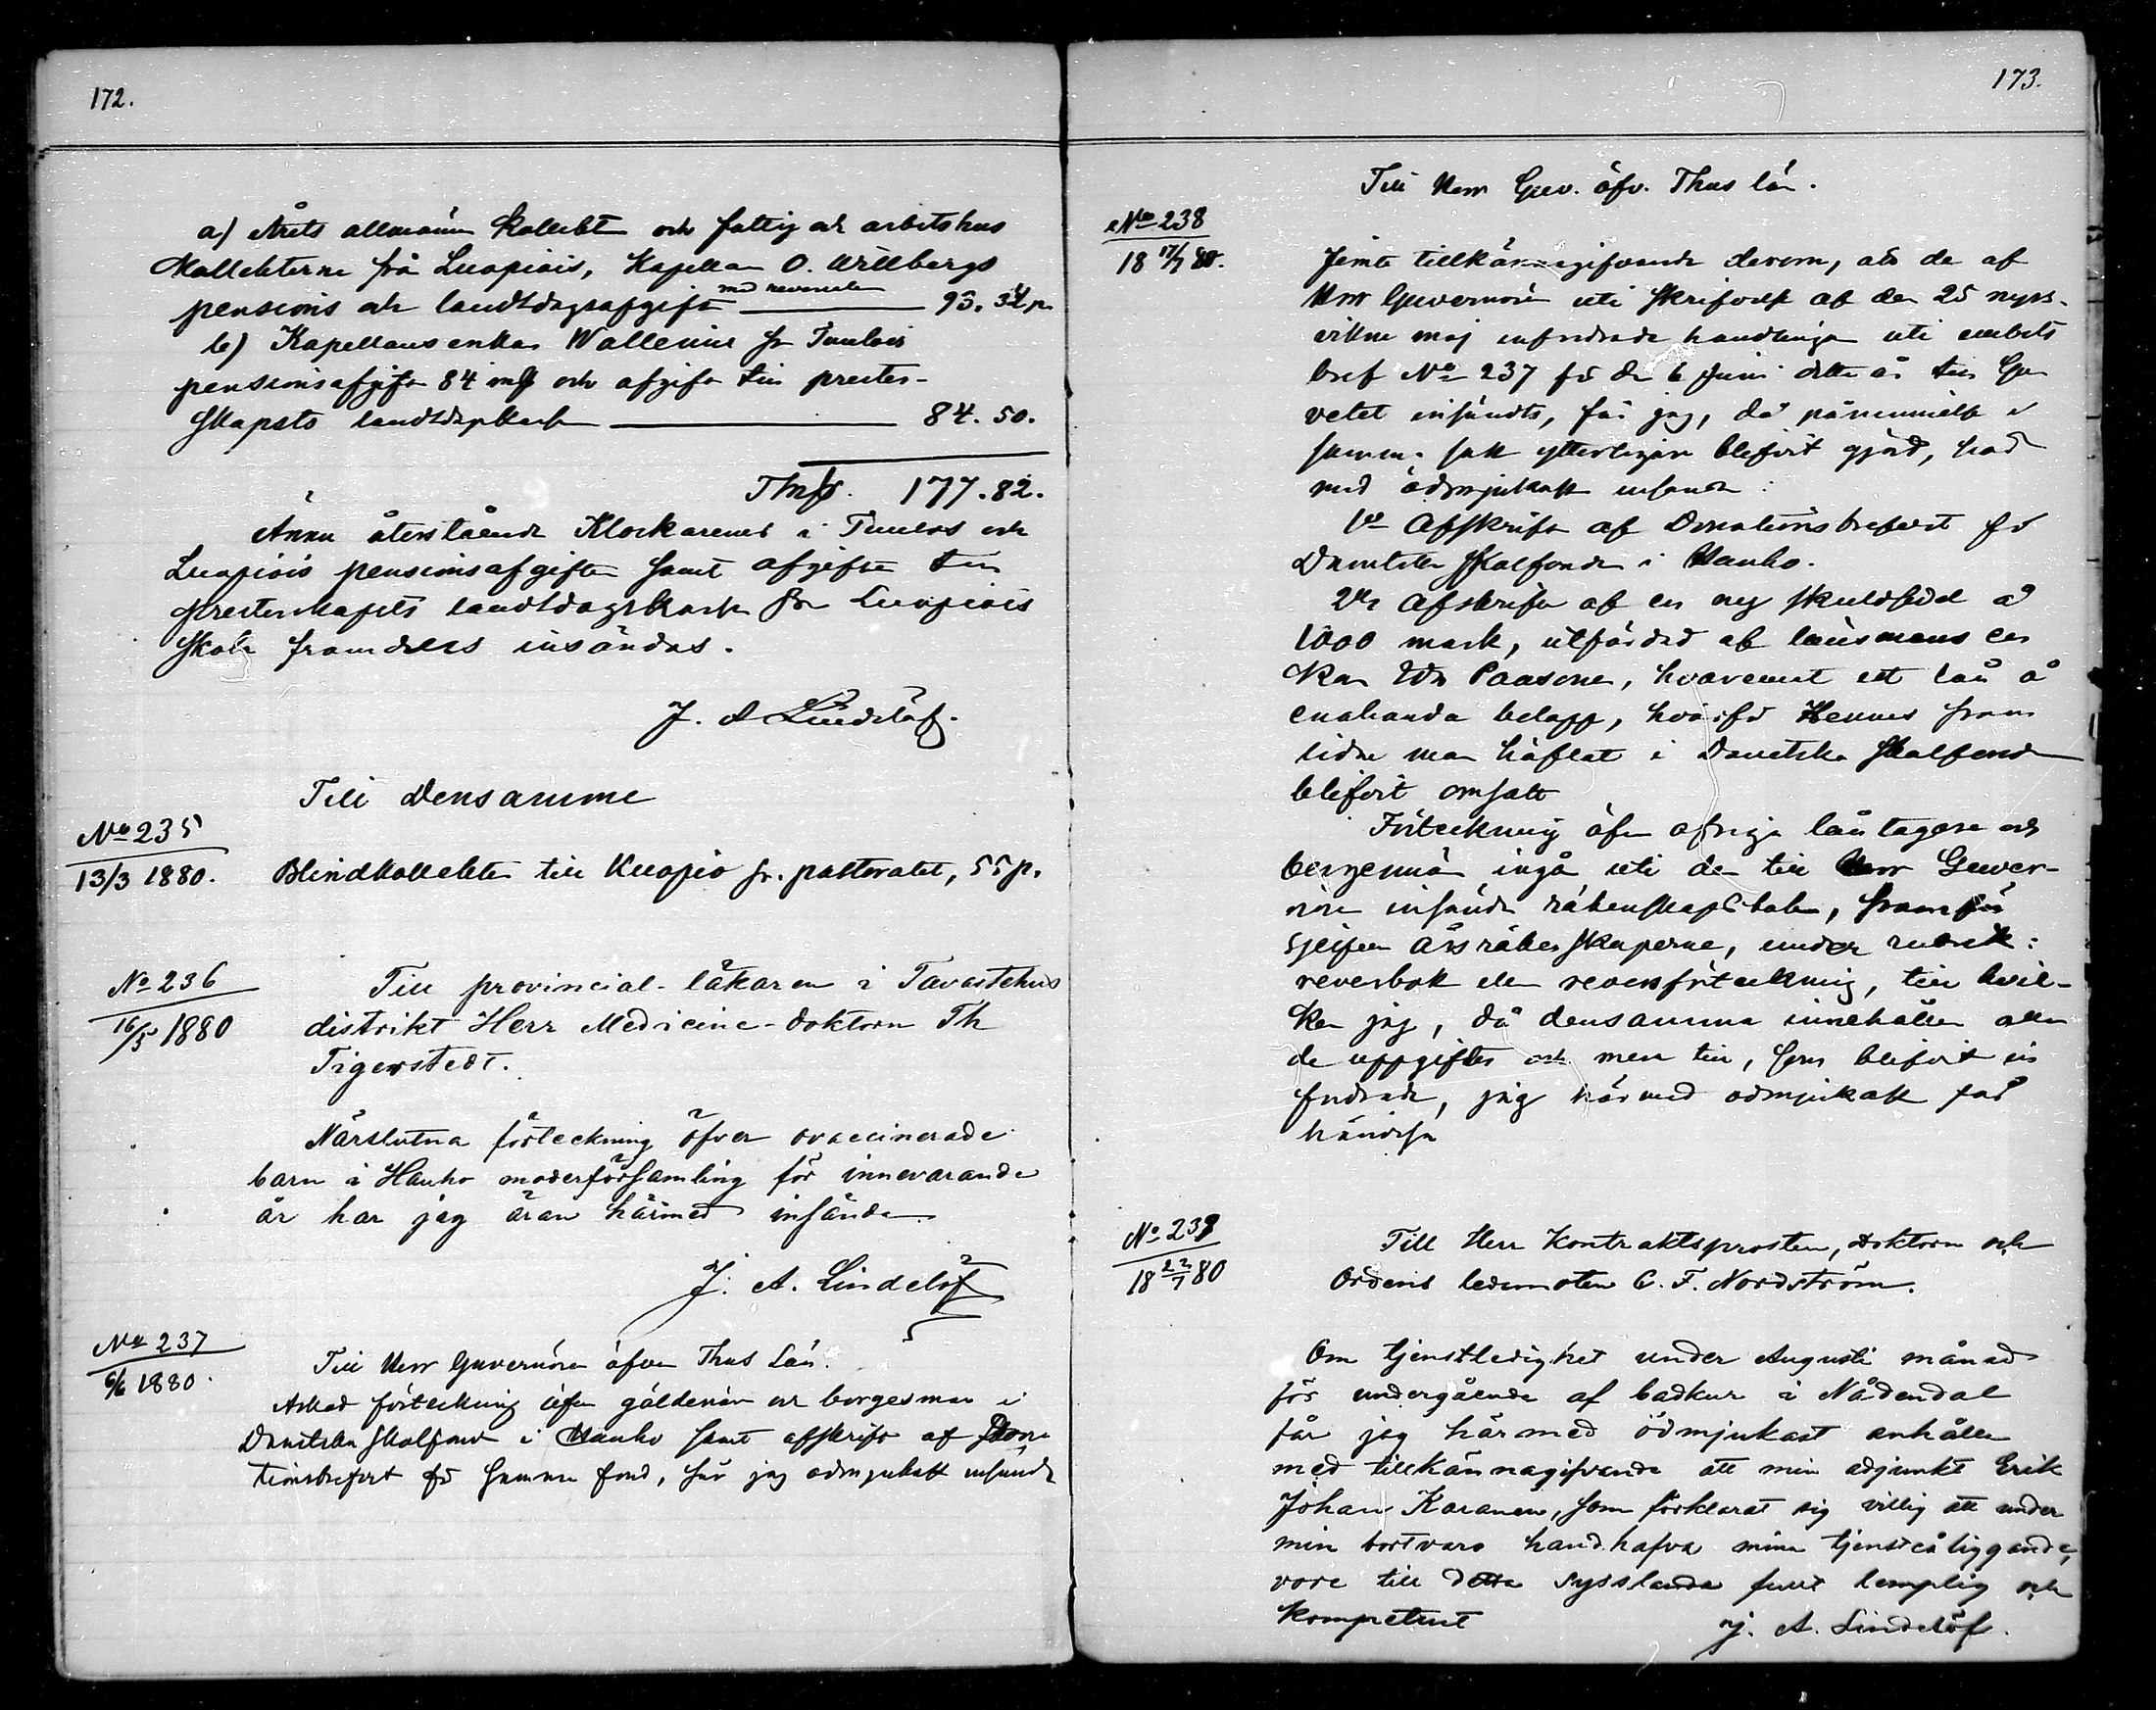 172.
a) Årets allmänna Kollekt och fattig och arbetshus
Kollekterne från Luopiois, Kapellan O. Willbergs
med revenuen
pensions och landtdagsafgift — 93. 32 p.
b) Kapellans enkan Wallenius fr Tuulois
pensionsafgift 84 mk och afgift till prester-
skapets landtdagskassa — 84. 50.
177. 82.
Ännu återstående Klockarenes i Tuulos och
Luopiois pensionsafgifter samt afgifter till
presterskapets landtdagskassa för Luopiois
skola framdeles insändas.
J. A Lindelöf.
Till Densamme
No 235
13/3 1880. Blindkollekten till Kuopio fr. pastoratet, 55 p.
No 236
16/5 1880
Till provincial-läkaren i Tavastehus
distrikt Herr Medicine-doktorn Th
Tigerstedt.
Närslutna förteckning öfver ovaccinerade
barn i Hauho moderförsamling för innevarande
år har jag äran härmed insända
J. A. Lindelöf
No 237
6/6 1880.
Till Herr Guvernören öfver Thus Län.
Askad förteckning öfver gäldenär och borgesman i
Skolfond i Hauho samt afskrift af Dona
tionsbrefvet för samma fond, får jag ödmjukast insända
173.
Till Herr Guv. öfv. Thus län.
No 238
18 17/7 80.
Jemte tillkännagifvande derom, att de af
Herr Guvernören uti skrifvelse af den 25 nyss-
vikne maj infordrade handlingar uti embets
bref No 237 för den 6 Juni detta år till Gu
vetet insändts, får jag, då påminnelse i
samma sak ytterligare blifvit gjord, här
med ödmjukast insända:
1o Afskrift af Donationsbrefvet för
Skolfonden i Hauho.
2o Afskrift af en ny skuldsedel å
1000 mark, utfärdad af länsmans en
kan Paasonen, hvarmed ett lån å
enahanda belopp, hvarför Hennes fram
lidne man häftat i Skolfond
blifvit omsatt
Förteckning öfver öfriga låntagare och
borgesmän ingå uti den till Herr Guver-
nören insända räkenskapsboken,
årsräkenskaperna, under rubrik:
reversbok eller reversförteckning, till hvil-
ken jag, då densamma innehåller alla
de uppgifter och mera till, som blifvit in
fordrade, jag härmed ödmjukast får
hänvisa
No 239
18 22/7 80
Till Herr Kontraktsprosten, doktorn och
Ordens ledamoten C. F. Nordström.
Om tjenstledighet under Augusti månad
för undergående af badkur i Nådendal
får jag härmed ödmjukast anhålla
med tillkännagifvande att min adjunkt Erik
Johan Karanen, som förklarat sig villig att under
min bortvaro handhafva mina tjensteåligganden,
vore till detta sysslande fullt lemplig och
kompetent
J. A. Lindelöf.